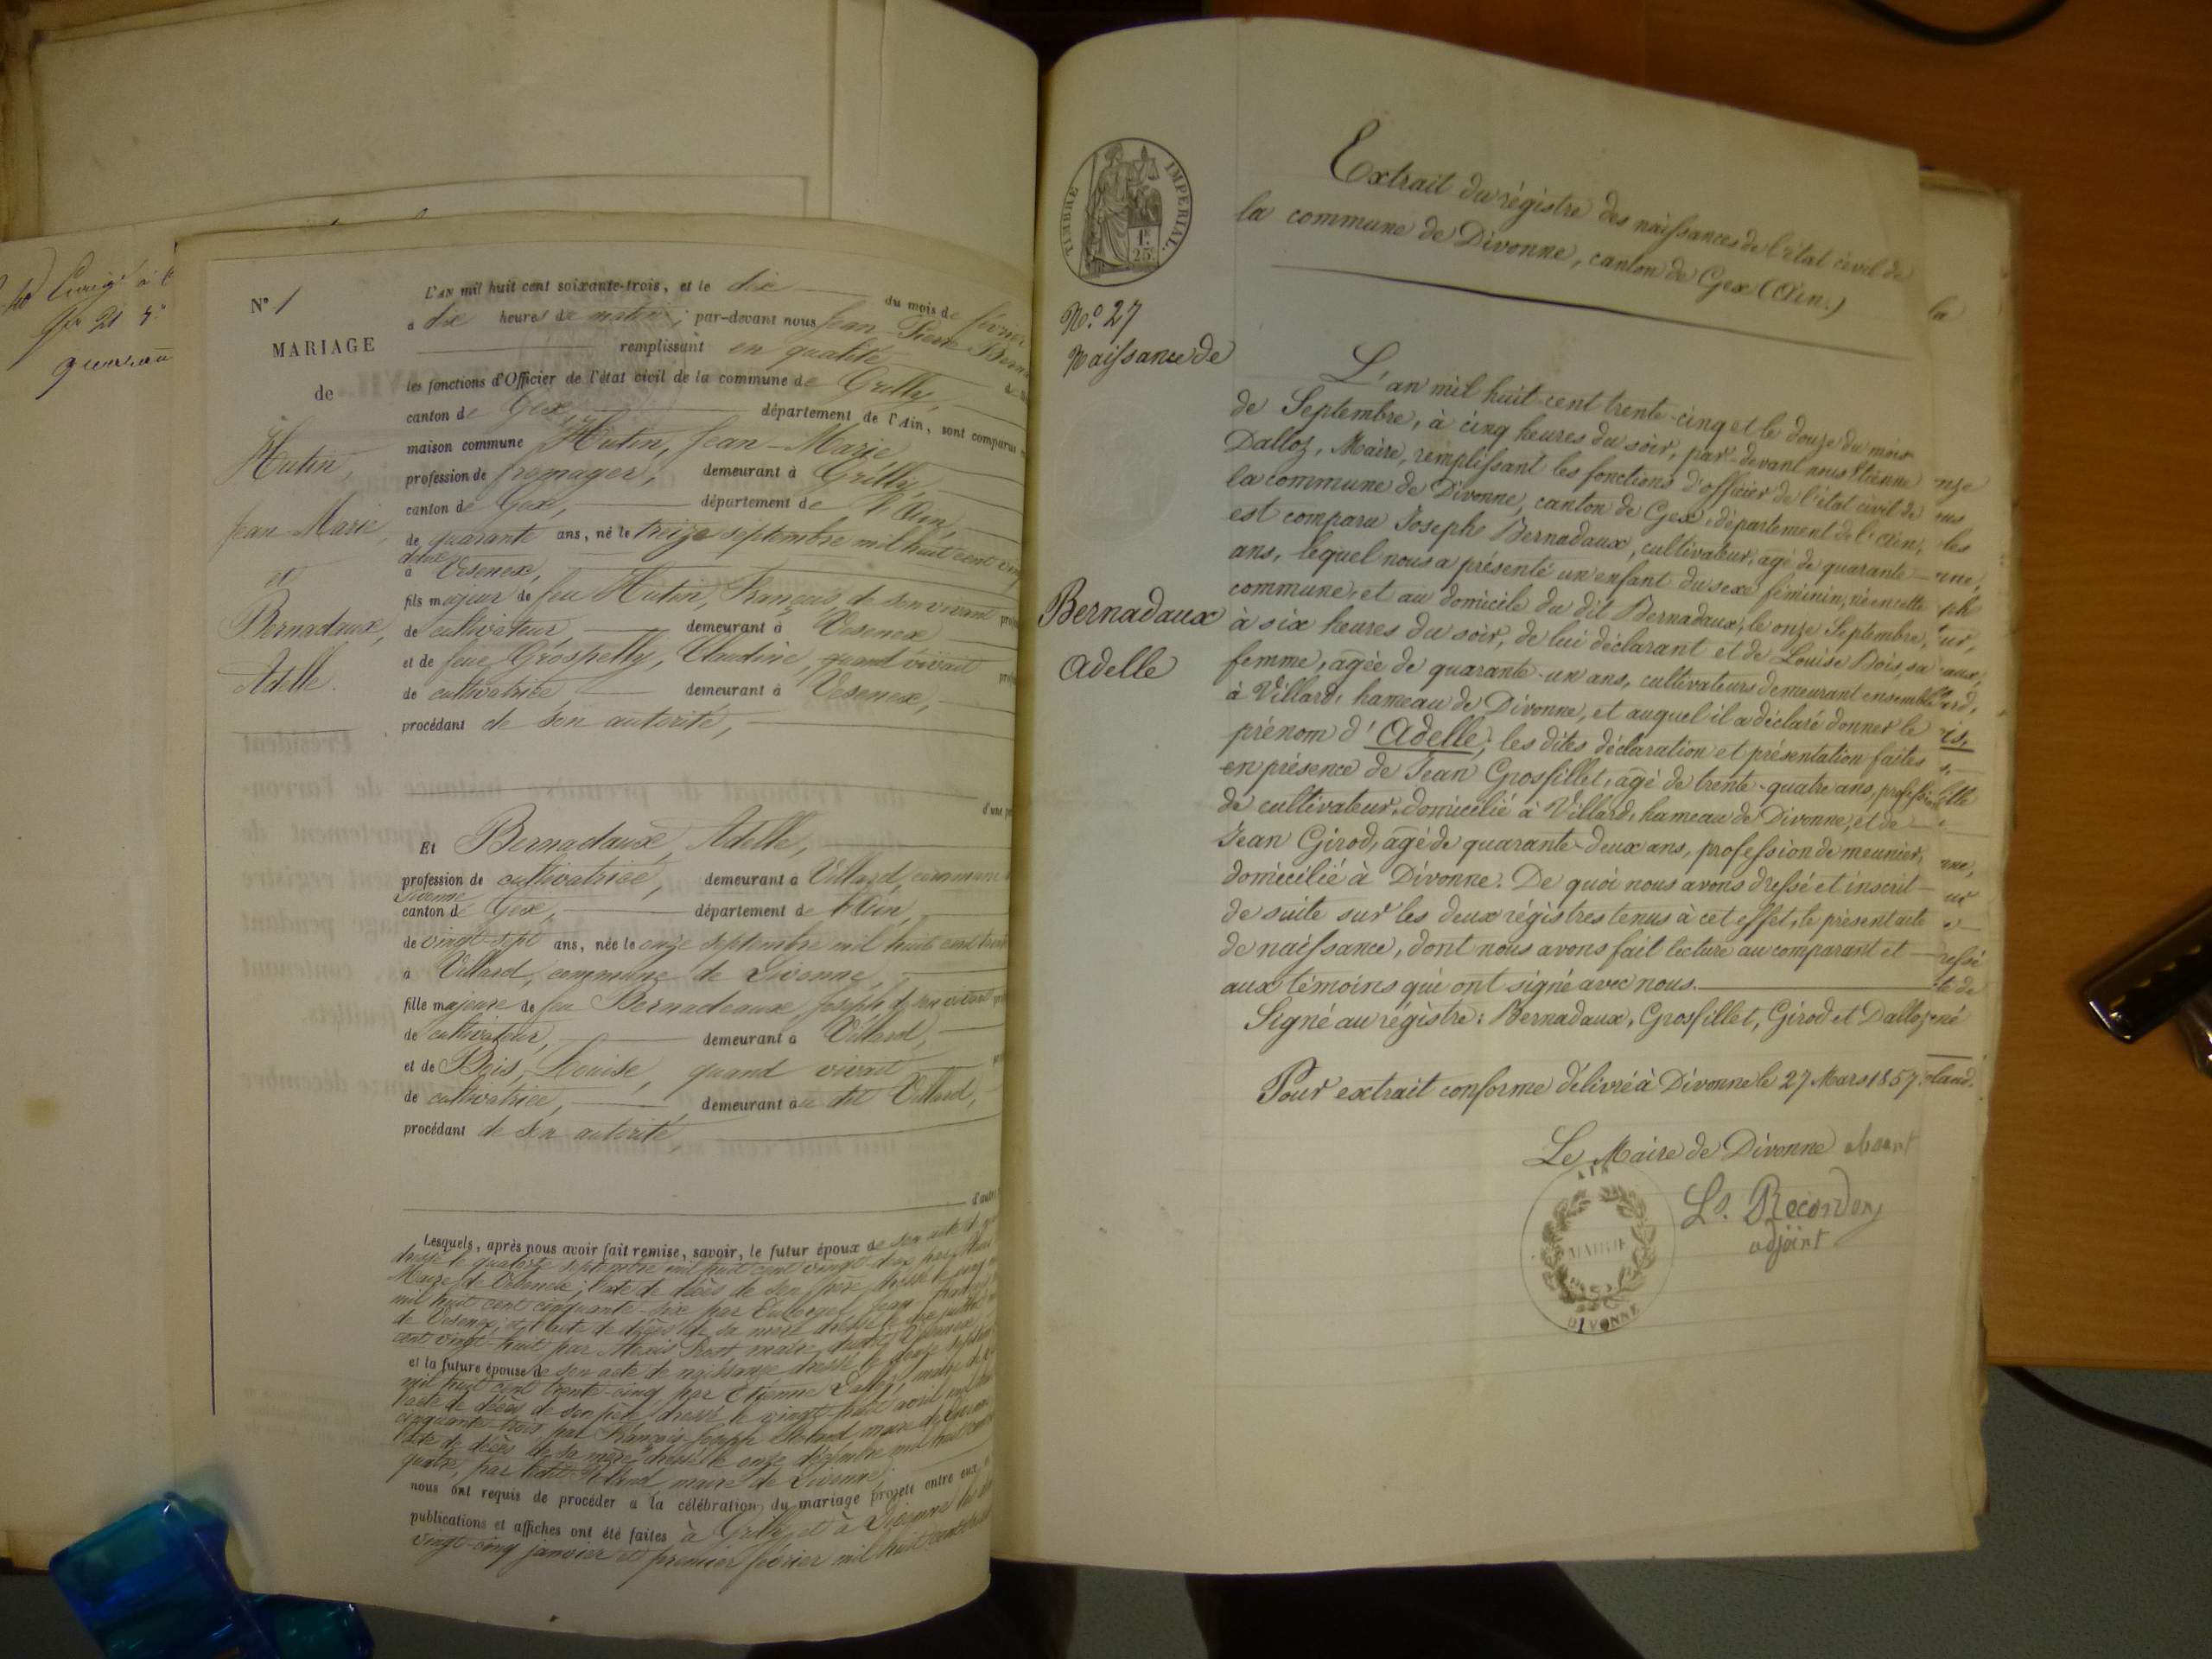 Nº 1
MARIAGE
de
Hutin,
Jean Marie,
et
Bernadaux,
Adelle.
L'AN mil huit cent soixante-trois, et le dix du mois de février
à dix heures de matin, par-devant nous Jean Pierre
remplissant en qualité
les fonctions d'Officier de l'état civil de la commune de Grilly,
canton de Gex, département de l'Ain, sont comparus
maison commune Hutin, Jean-Marie
profession de fromager, demeurant à Grilly,
canton de Gex, département de l'Ain,
de quarante ans, né le treize septembre mil huit cent vingt
deux
à Vesenex,
fils majeur de feu Hutin, François, de son vivant
de cultivateur, demeurant à Vesenex
et de feue Grospelly, Claudine, quand vivait
de cultivatrice, demeurant à Vesenex,
procédant de son autorité,
d'une
Et Bernadaux, Adelle,
profession de cultivatrice, demeurant à Villard, commune
Divonne
canton de Gex, département de l'Ain,
de vingt-sept ans, née le onze septembre mil huit cent
à Villard, commune de Divonne,
fille majeure de feu Bernadeaux Joseph de son vivant
de cultivateur, demeurant à Villard,
et de Bois, Louise, quand vivait
de cultivatrice, demeurant au dit Villard,
procédant de son autorité,
Lesquels, après nous avoir fait remise, savoir, le futur époux de son acte de
dressé le quatorze septembre mil huit cent vingt deux par
Maire de Vesenex; l'acte de décès de son père, dressé le
mil huit cent cinquante-six par Jean
de Vesenex; et l'acte de décès de sa mère dressé le dix juillet
cent vingt-huit par Alexis Prost, maire dudit Vesenex
et la future épouse de son acte de naissance dressé le douze septembre
mil huit cent trente-cinq par Etienne Dalloz, maire de
l'acte de décès de son père dressé le vingt-huit avril mil
cinquante-trois par François-Joseph Roland, maire de Divonne
l'acte de décès de sa mère dressé le onze décembre mil huit cent
quatre, par ledit Rolland, maire de Divonne;
nous ont requis de procéder à la célébration du mariage projeté entre eux
publications et affiches ont été faites à Grilly et à Divonne les
vingt-cinq janvier et premier février mil huit cent
TIMBRE IMPÉRIAL.
1f.
25c
Nº. 27
Naissance de
Bernadaux
Adelle
Extrait du régistre des naissances de l'état civil de
la commune de Divonne, canton de Gex (Ain.)
L'an mil huit-cent trente-cinq et le douze du mois
de Septembre, à cinq heures du soir, par-devant nous Etienne
Dalloz, Maire, remplissant les fonctions d'officier de l'état civil de
la commune de Divonne, canton de Gex, département de l'Ain,
est comparu Joseph Bernadaux, cultivateur, agé de quarante
ans, lequel nous a présenté un enfant du sexe féminin, né en cette
commune et au domicile du dit Bernadaux, le onze Septembre,
à six heures du soir, de lui déclarant et de Louise Bois, sa
femme, agée de quarante-un ans, cultivateurs demeurant ensemble
à Villard, hameau de Divonne, et auquel il a déclaré donner le
prénom d'Adelle; les dites déclaration et présentation faites
en présence de Jean Grosfillet, agé de trente-quatre ans, profession
de cultivateur, domicilié à Villard, hameau de Divonne, et de
Jean Girod, agé de quarante-deux ans, profession de meunier,
domicilié à Divonne. De quoi nous avons dressé et inscrit
de suite sur les deux régistres tenus à cet effet, le présent acte
de naissance, dont nous avons fait lecture au comparant et
aux témoins qui ont signé avec nous.
Signé au régistre: Bernadaux, Grosfillet, Girod et Dalloz
Pour extrait conforme délivré à Divonne le 27 Mars 1857.
Le Maire de Divonne absent
Ls. Recordon
adjoint
AIN
MAIRIE
DIVONNE